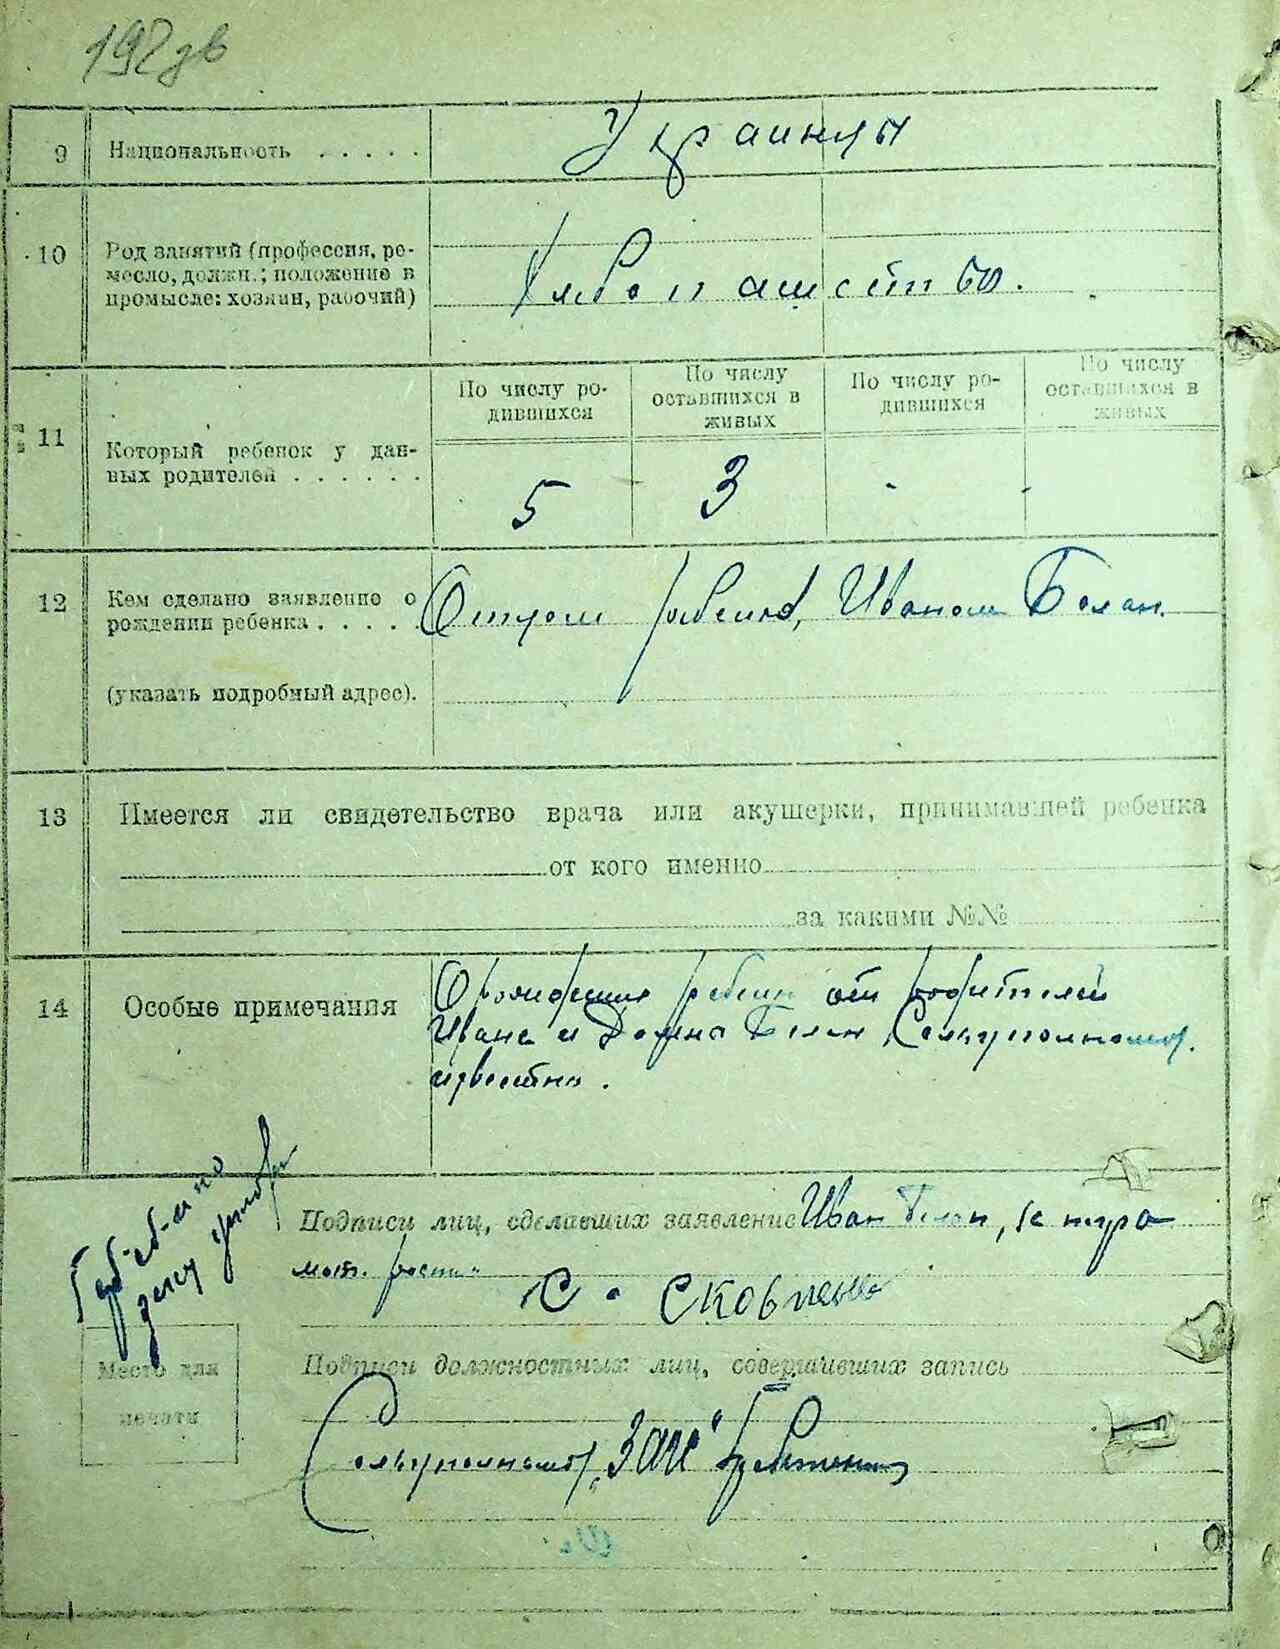 192 дв
9 Национальность . . . . . Украинцы
10 Род занятий (профессия, ре-
месло, должн.; положение в
промысле: хозяин, рабочий)
Хлебопашество.
По числу ро-
дившихся
По числу
оставшихся в
живых
По числу ро-
дившихся
По числу
оставшихся в
живых
11 Который ребенок у дан-
ных родителей . . . . . .
5 3 - -
12 Кем сделано заявление о
рождении ребенка . . . .
Отцом ребенка, Иваном Белан.
(указать подробный адрес).
13 Имеется ли свидетельство врача или акушерки, принимавшей ребенка
от кого именно
за какими №№
14 Особые примечания
О рождении ребенка от родителей
Ивана и Белан Сельуполномоч.
известно.
Подписи лиц, сделавших заявление Иван Белан, негра
мот.
С.
Подписи должностных лиц, совершивших запись
Место для
печати
Сельуполномоч. ЗАГС